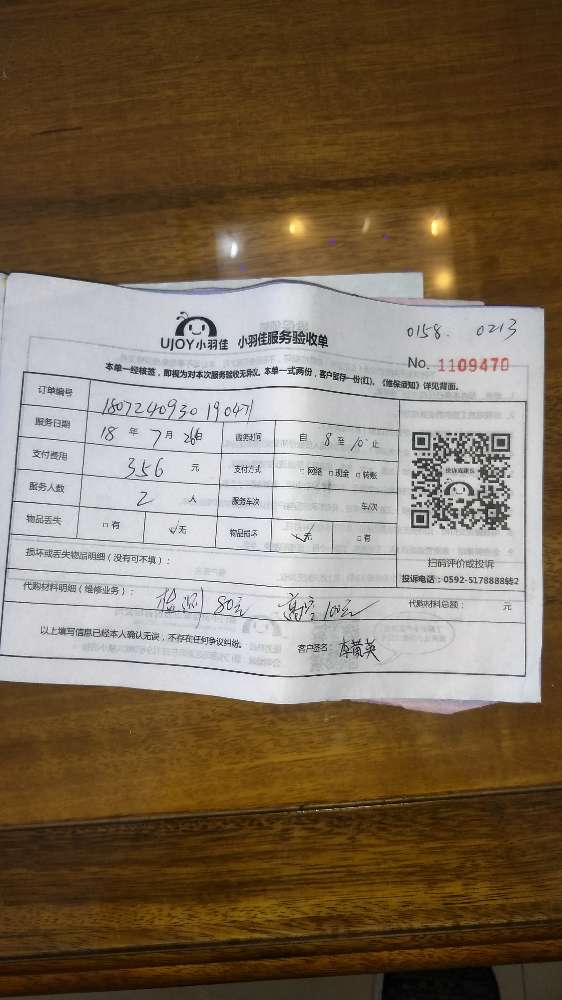 UJOY小羽佳 小羽佳服务验收单
0158. 0213
No. 1109470
本单一经核签，即视为对本次服务验收无异议。本单一式两份，客户留存一份(红)。《维保须知》详见背面。
订单编号 1807240930190471
服务日期 18 年 7 月 26日 服务时间 自 8 至 10 止
支付费用 356 元 支付方式 □网络 □现金 □转账
服务人数 2 人 服务车次 车/次
物品丢失 □有 ☑无 物品损坏 ☑无 □有
投诉或建议
扫码评价或投诉
投诉电话：0592-5178888转2
损坏或丢失物品明细（没有可不填）：
代购材料明细（维修业务）： 检测 80元 高空 100元 代购材料总额： 元
以上填写信息已经本人确认无误，不存在任何争议纠纷。 客户签名：